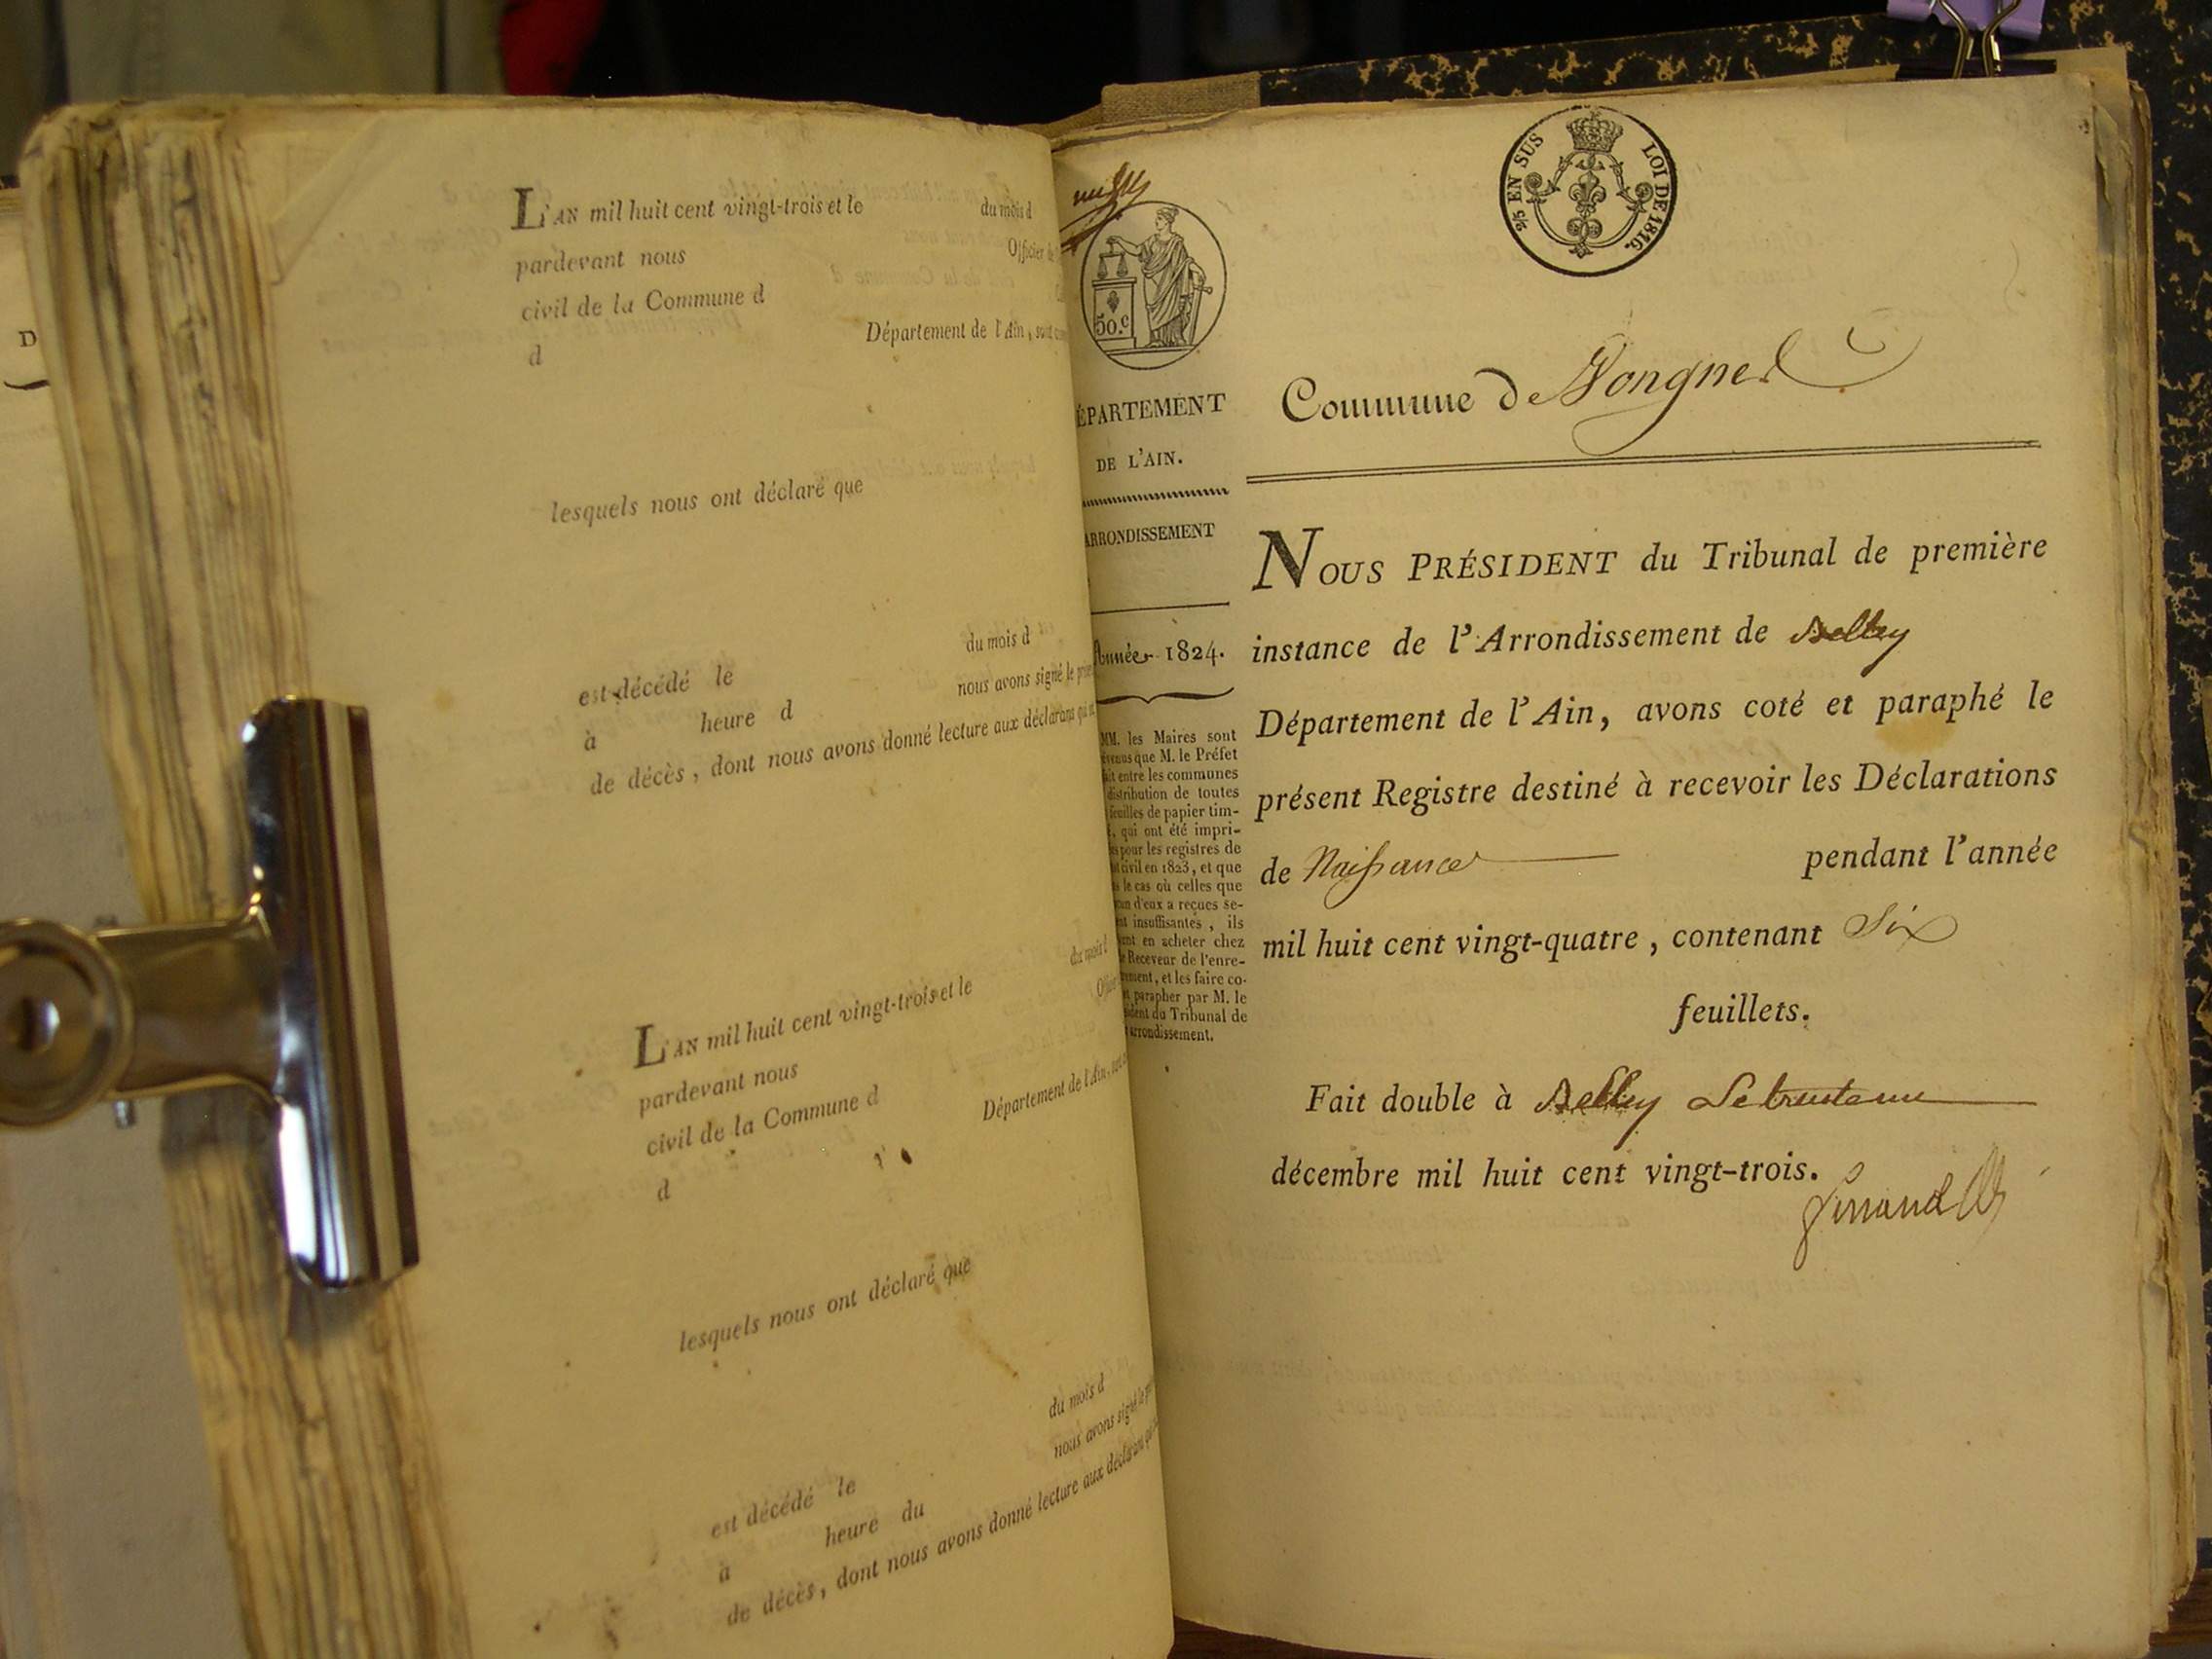 D
L'AN mil huit cent vingt-trois et le du mois d
pardevant nous Officier de
civil de la Commune d
d Département de l'Ain, sont
lesquels nous ont déclaré que
est décédé le du mois d
à heure d nous avons signé le
de décès, dont nous avons donné lecture aux déclarans qui
L'AN mil huit cent vingt-trois et le du mois
pardevant nous
civil de la Commune d
d Département de l'Ain,
lesquels nous ont déclaré que
est décédé le du mois d
à heure du nous avons signé le
de décès, dont nous avons donné lecture aux déclarans
2/5 EN SUS LOI DE 1816.
50.c
ÉPARTEMENT
DE L'AIN.
ARRONDISSEMENT
Année 1824.
MM. les Maires sont
que M. le Préfet
entre les communes
distribution de toutes
feuilles de papier tim-
qui ont été impri-
pour les registres de
civil en 1823, et que
le cas où celles que
d'eux a reçues se-
insuffisantes, ils
en acheter chez
Receveur de l'enre-
et les faire co-
parapher par M. le
du Tribunal de
arrondissement.
Commune de Vongnes
NOUS PRÉSIDENT du Tribunal de première
instance de l'Arrondissement de Belley
Département de l'Ain, avons coté et paraphé le
présent Registre destiné à recevoir les Déclarations
de Naissance pendant l'année
mil huit cent vingt-quatre, contenant Six
feuillets.
Fait double à Belley Le trente un
décembre mil huit cent vingt-trois.